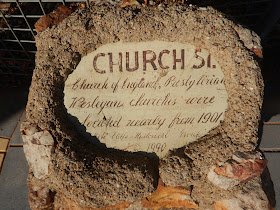 CHURCH St.
Church of England, Presbyterian
Wesleyans churches were
located nearby from 1901.
1990